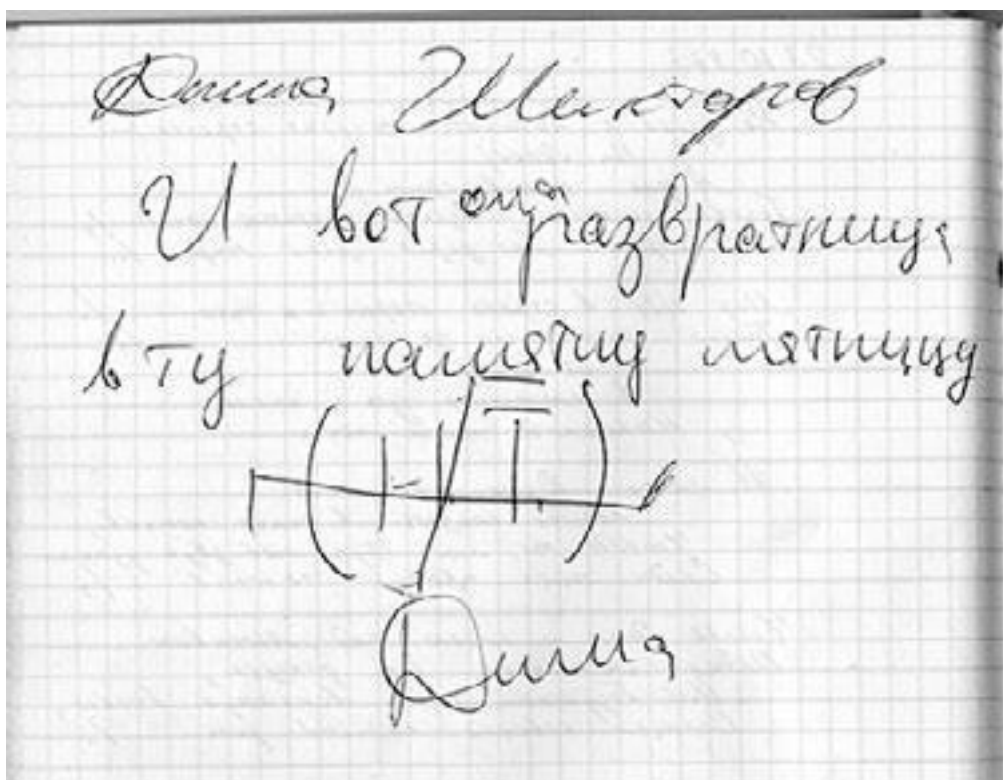 Дима Шикторов
И вот она развратница
в ту памятну пятницу
Дима